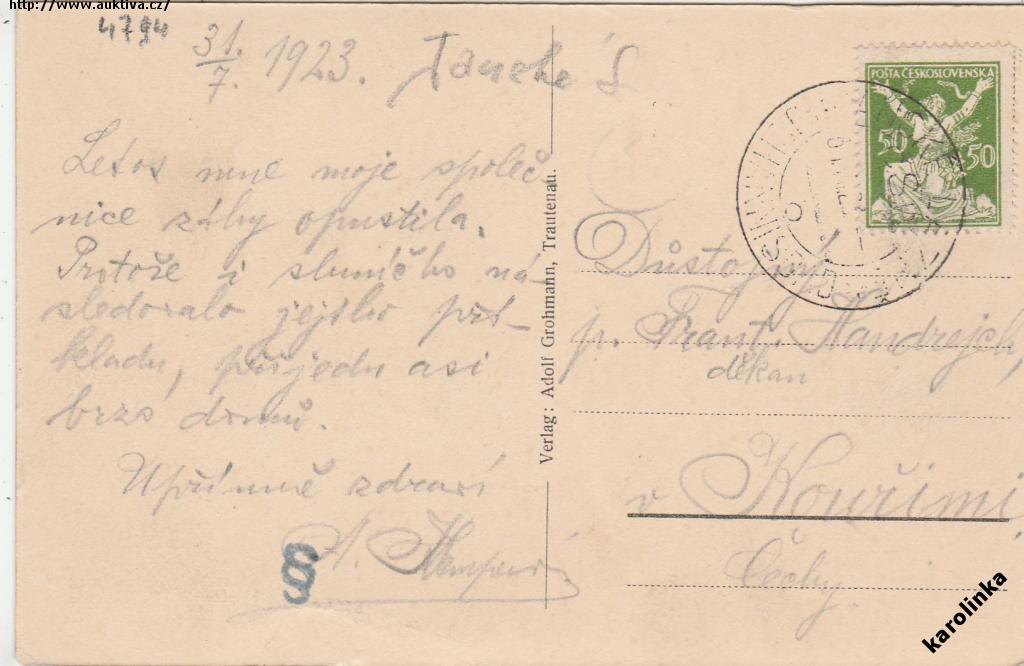 http://www.auktiva.cz/
4794
31./7. 1923.
Letos mne moje společ
nice záhy opustila.
Protože i sluníčko ná-
sledovalo jejího pří-
kladu, přijedu asi
brzo domů.
Upřímně zdraví
A.
§
Verlag: Adolf Grohmann, Trautenau.
POŠTA ČESKOSLOVENSKÁ
50 50
Důstojný
p. Frant. Handrejch,
děkan
v Kouřimi
Čechy.
karolinka